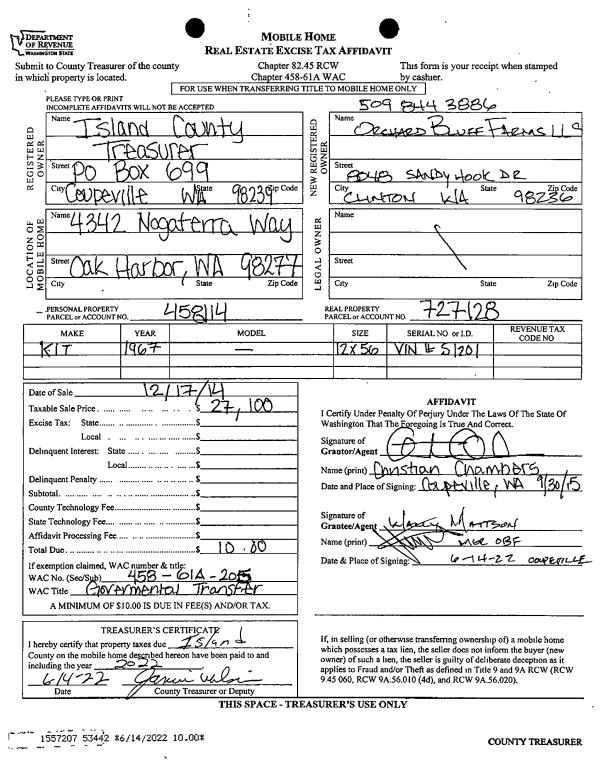 DEPARTMENT
OF REVENUE
WASHINGTON STATE
MOBILE HOME
REAL ESTATE EXCISE TAX AFFIDAVIT
Submit to County Treasurer of the county
in which property is located.
Chapter 82.45 RCW
Chapter 458-61A WAC
This form is your receipt when stamped
by cashier.
FOR USE WHEN TRANSFERRING TITLE TO MOBILE HOME ONLY
PLEASE TYPE OR PRINT
INCOMPLETE AFFIDAVITS WILL NOT BE ACCEPTED
509 844 3886
REGISTERED OWNER
Name Island County
Treasurer
Street PO Box 699
City Coupeville WA State 98239 Zip Code
NEW REGISTERED OWNER
Name
ORCHARD BLUFF FARMS LLC
Street 8048 SANDY HOOK DR
City CLINTON WA State 98236 Zip Code
LOCATION OF MOBILE HOME
Name 4342 Nogaterra Way
Street Oak Harbor, WA 98277
City State Zip Code
LEGAL OWNER
Name
Street
City State Zip Code
PERSONAL PROPERTY
PARCEL or ACCOUNT NO. 458114
REAL PROPERTY
PARCEL or ACCOUNT NO. 727128
MAKE YEAR MODEL SIZE SERIAL NO or I.D. REVENUE TAX CODE NO
KIT 1967 — 12X56 VIN # S1201
Date of Sale 12/17/14
Taxable Sale Price $ 27,100
Excise Tax: State $
Local $
Delinquent Interest: State $
Local $
Delinquent Penalty $
Subtotal $
County Technology Fee $
State Technology Fee $
Affidavit Processing Fee $
Total Due $ 10.00
If exemption claimed, WAC number & title:
WAC No. (Sec/Sub) 458-61A-205
WAC Title Govermental Transfer
A MINIMUM OF $10.00 IS DUE IN FEE(S) AND/OR TAX.
AFFIDAVIT
I Certify Under Penalty Of Perjury Under The Laws Of The State Of
Washington That The Foregoing Is True And Correct.
Signature of
Grantor/Agent
Name (print) Christian Chambers
Date and Place of Signing: Coupeville, WA 9/30/15
Signature of
Grantee/Agent Mattson
Name (print) MGR OBF
Date & Place of Signing: 6-14-22 COUPEVILLE
TREASURER'S CERTIFICATE
I hereby certify that property taxes due Island
County on the mobile home described hereon have been paid to and
including the year 2022
6/14/22
Date County Treasurer or Deputy
If, in selling (or otherwise transferring ownership of) a mobile home
which possesses a tax lien, the seller does not inform the buyer (new
owner) of such a lien, the seller is guilty of deliberate deception as it
applies to Fraud and/or Theft as defined in Title 9 and 9A RCW (RCW
9 45 060, RCW 9A.56.010 (4d), and RCW 9A.56.020).
THIS SPACE - TREASURER'S USE ONLY
1557207 53442 *6/14/2022 10.00*
COUNTY TREASURER